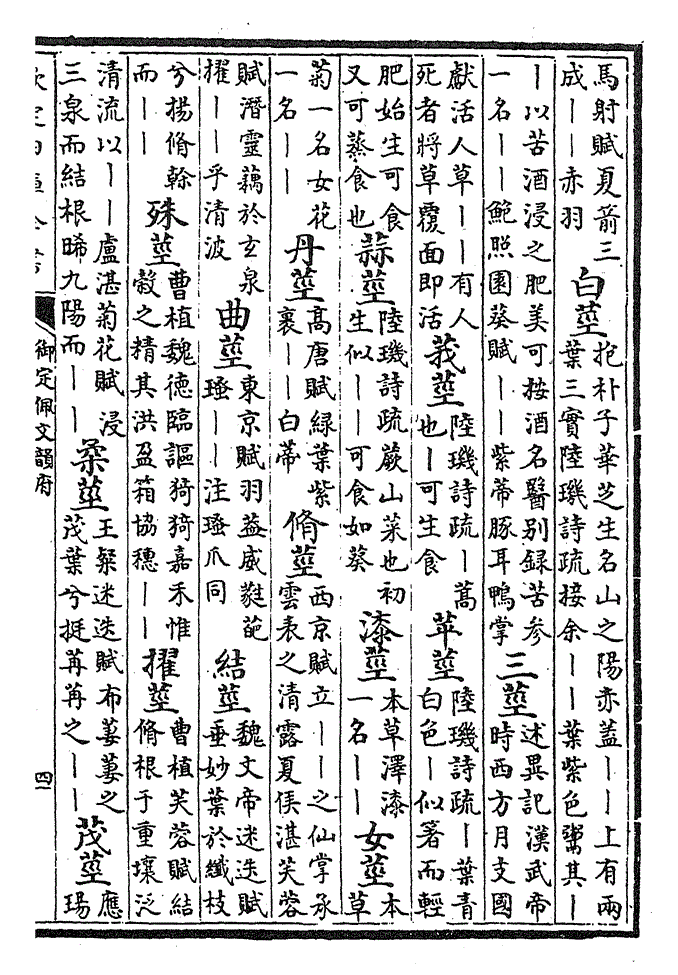 馬射賦夏箭三成丨丨赤羽 白莖 抱朴子華芝生名山之陽赤蓋丨丨上有兩葉三實陸璣詩疏接余丨丨葉紫色鬻其丨
丨以苦酒浸之肥美可按酒名醫別録苦參一名丨丨鮑照園葵賦丨丨紫蒂豚耳鴨掌 三莖 述異記漢武帝時西方月支國
獻活人草丨丨有人死者將草覆面即活 莪莖 陸璣詩疏丨蒿也丨可生食 苹莖 陸璣詩疏丨葉青白色丨似箸而輕
肥始生可食又可蒸食也 蒜莖 陸璣詩疏蕨山菜也初生似丨丨可食如葵 漆莖 本草澤漆一名丨丨 女莖 本草
菊一名女花一名丨丨 丹莖 高唐賦緑葉紫裏丨丨白蒂 脩莖 西京賦立丨丨之仙掌承雲表之清露夏侯湛芙蓉
賦潛靈藕於玄泉擢丨丨乎清波 曲莖 東京賦羽蓋威蕤葩瑵丨丨注瑵爪同 結莖 魏文帝迷迭賦垂妙葉於纖枝
兮揚脩幹而丨丨 殊莖 曹植魏德臨謳猗猗嘉禾惟穀之精其洪盈箱協穗丨丨 擢莖 曹植芙蓉賦結脩根于重壤泛
清流以丨丨盧湛菊花賦浸三泉而結根晞九陽而丨丨 柔莖 王粲迷迭賦布萋萋之茂葉兮挺苒苒之丨丨 茂莖 應瑒
欽定四庫全書
御定佩文韻府
四